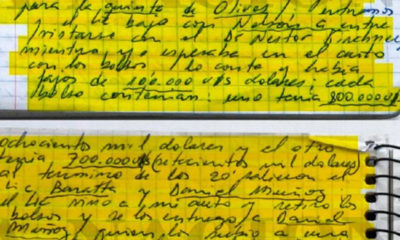 para la quinta de Olivos / entramos
el Lic bajo con Nelson a entre
vistarse con el Dr Nestor Kirchner
mientras yo esperaba en el auto
con los bolsos / Me consta había
fajos de 100.000 u$s dolares: cada
bolso contenian: uno tenia 800.000 u$s
ochociento mil dolares y el otro
tenia 700.000 u$s (setecientos mil dolares)
al termino de los 20' salieron el
Lic Baratta y Daniel Muñoz
el Lic vino a mi auto y retiro los
bolsos y se los entrego a Daniel
Muñoz / quien los subio a una